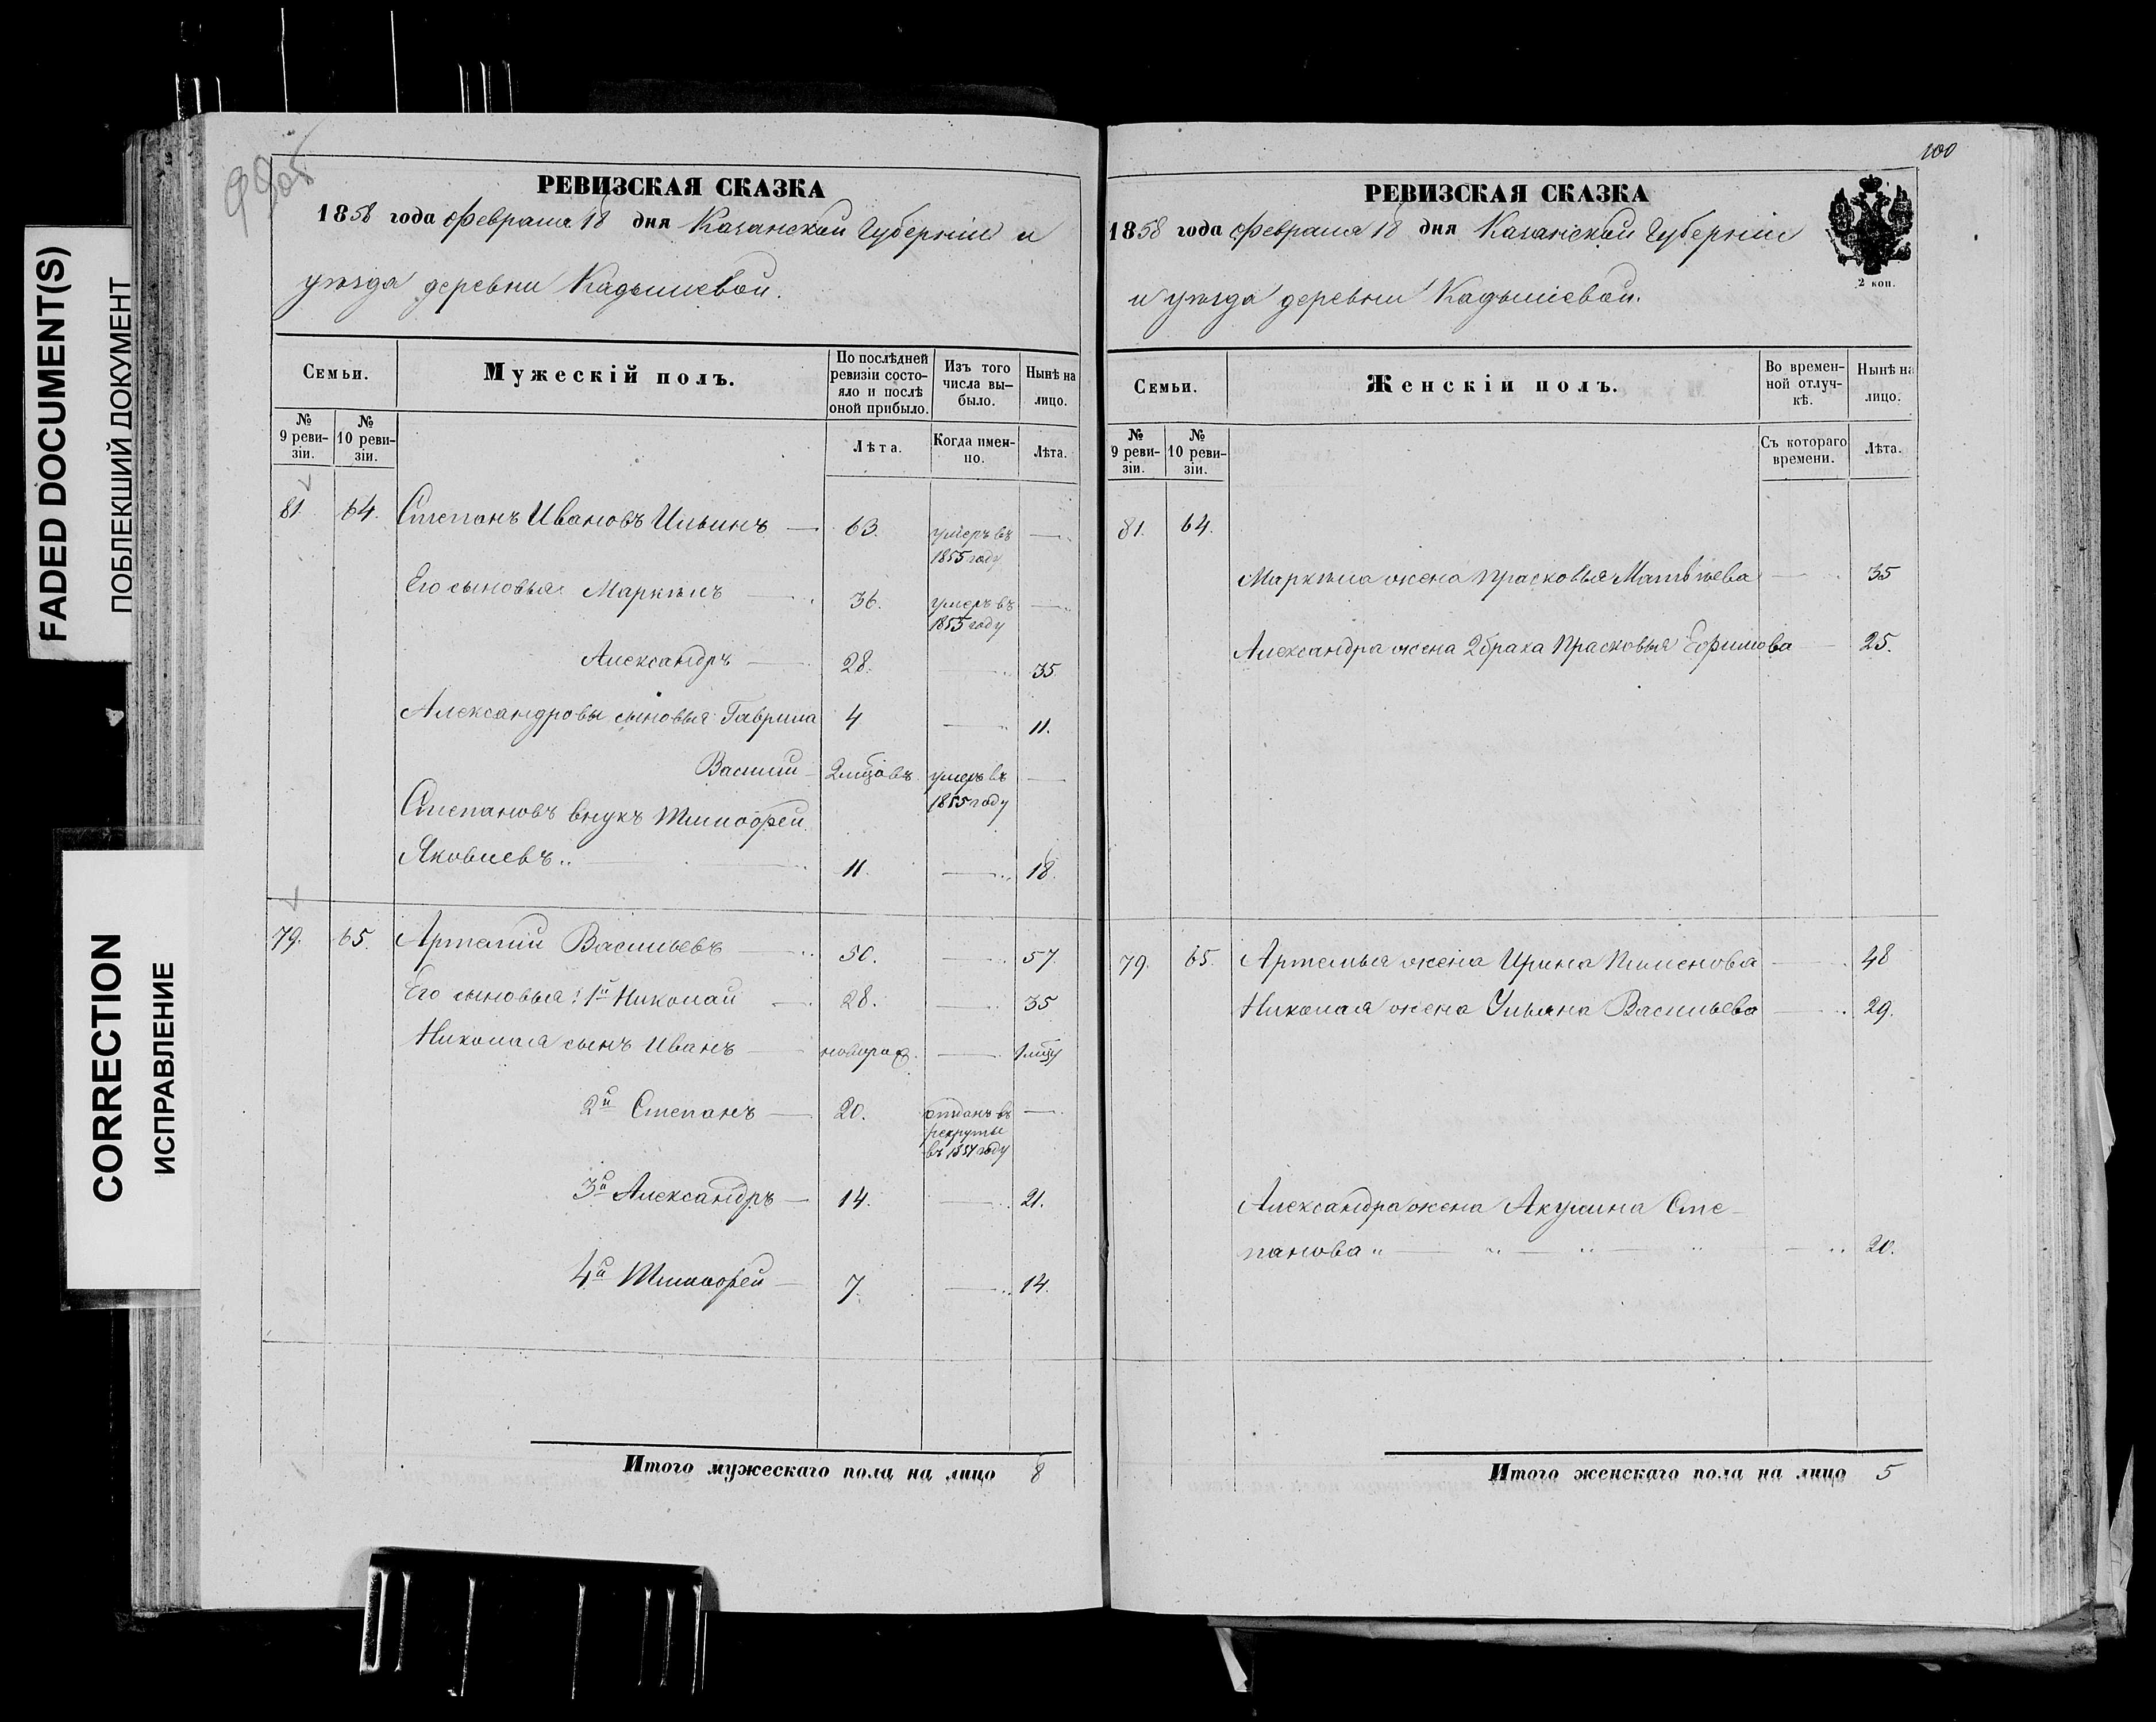 FADED DOCUMENT(S)
ПОБЛЕКШИЙ ДОКУМЕНТ
CORRECTION
ИСПРАВЛЕНИЕ
РЕВИЗСКАЯ СКАЗКА
1858 года Февраля 18 дня Казанской Губернiи и
уѣзда деревни Кадышевой.
Семьи.
Мужескiй полъ.
По послѣдней ревизiи состо-
яло и послѣ
оной прибыло.
Изъ того
числа вы-
было.
Нынѣ на
лицо.
№
9 реви-
зiи.
№
10 реви-
зiи.
Лѣта.
Когда имен-
но.
Лѣта.
81. 64. Степанъ Ивановъ Ильинъ — 63. умеръ въ —
1855 году
Его сыновья Маркѣлъ — 36. умеръ въ —
1855 году
Александръ — 28. — 35
Александровы сыновья Гаврила 4 — 11.
Василий 2 мцовъ умеръ въ —
1855 году
Степановъ внукъ Тимофей
Яковлевъ.. 11. — 18.
79. 65. Артемiй Васильевъ — 50. — 57.
Его сыновья: 1й Николай — 28. — 35
Николая сынъ Иванъ — новорож. — 1 мцу
2й Степанъ — 20. отданъ въ —
рекруты
въ 1854 году
3й Александръ — 14. — 21.
4й Тимофей — 7. — 14.
Итого мужескаго пола на лицо 8
100
РЕВИЗСКАЯ СКАЗКА
1858 года Февраля 18 дня Казанской Губернiи
и уѣзда деревни Кадышевой.
2 коп.
Семьи.
Женскiй полъ.
Во времен-
ной отлуч-
кѣ.
Нынѣ на
лицо.
№
9 реви-
зiи.
№
10 реви-
зiи.
Съ котораго
времени.
Лѣта.
81. 64.
Маркѣла жена Прасковья Матвѣева — 35
Александра жена 2 брака Прасковья Ефимова — 25.
79. 65. Артемья жена Ирина Пименова — 48
Николая жена Ульяна Васильева — 29.
Александра жена Акулина Сте-
панова — 20.
Итого женскаго пола на лицо 5